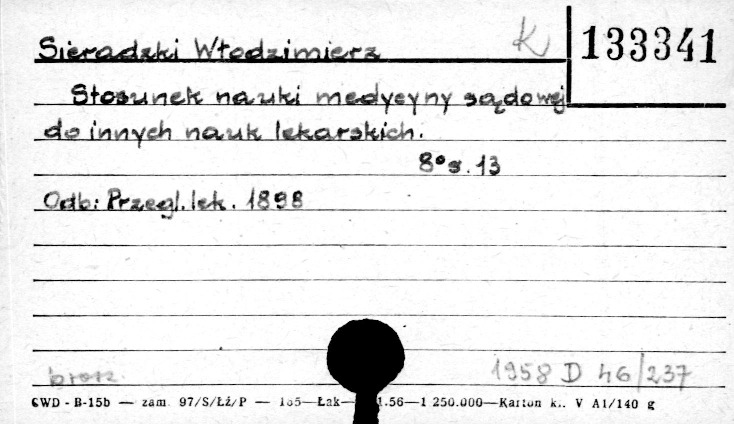 Sieradzki Włodzimierz K 133341
Stosunek nauki medycyny sądowej
do innych nauk lekarskich.
8° s. 13
Odb: Przegl. lek. 1898
brosz. 1958 D 46/237
CWD - B-15b — zam. 97/S/Łź/P — 165—Łak— 1.56—1 250.000—Karton kl. V A1/140 g